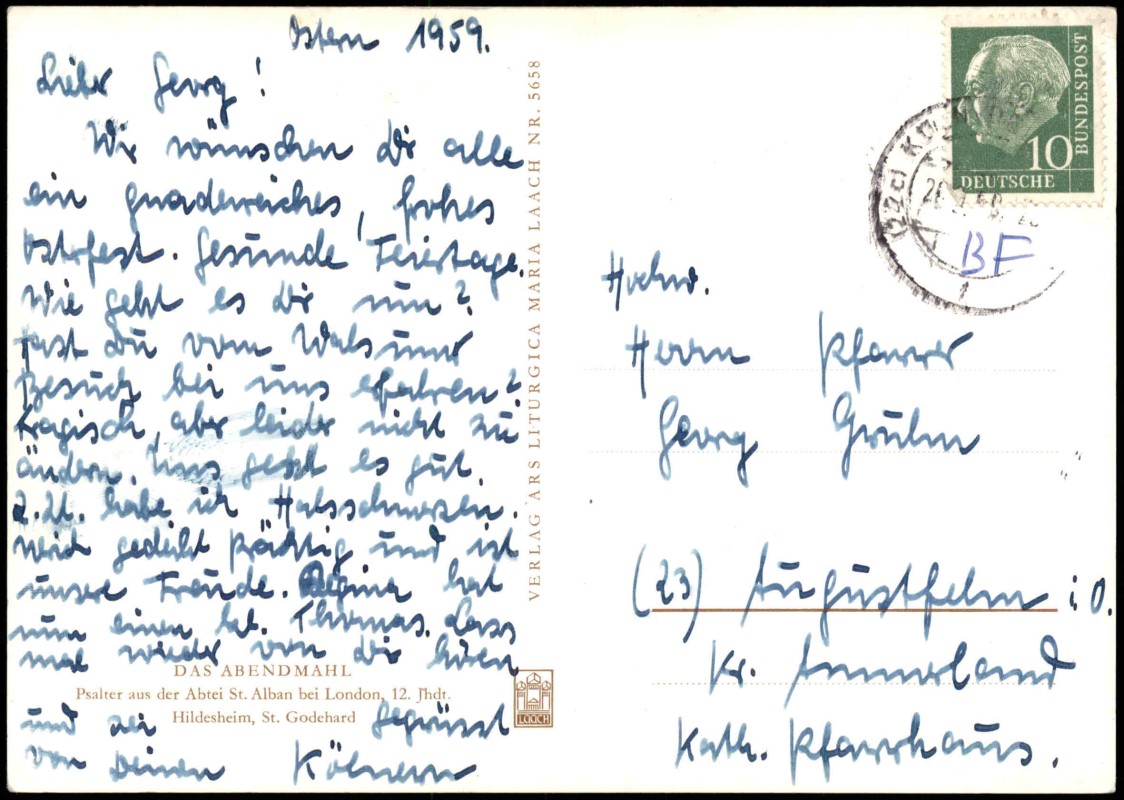 Ostern 1959.
Lieber Georg!
Wir wünschen Dir alle
ein gnadenreiches, frohes
Osterfest. Gesunde Feiertage.
Wie geht es Dir nun?
Hast Du vom
Besuch bei uns erfahren?
Tragisch, aber leider nicht zu
ändern. Uns geht es gut.
Z. Zt. habe ich Halsschmerzen.
gedeiht prächtig und ist
unsere Freude. Regina hat
nun einen kl. Thomas. Lass
mal wieder von Dir hören
und sei gegrüsst
von Deinen Kölnern
DAS ABENDMAHL
Psalter aus der Abtei St. Alban bei London, 12. Jhdt.
Hildesheim, St. Godehard
LAACH
VERLAG ARS LITURGICA MARIA LAACH NR. 5658
10
DEUTSCHE
BUNDESPOST
(22c)
BF
Hochw.
Herrn Pfarrer
Georg
(23) Augustfehn i. O.
Kr. Ammerland
Kath. Pfarrhaus.